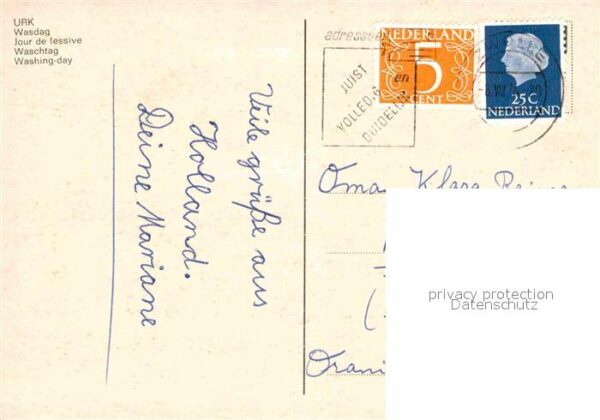 URK
Wasdag
Jour de lessive
Waschtag
Washing-day
Veile grüße aus
Holland.
Deine Mariane
NEDERLAND
5
CENT
25C
NEDERLAND
JUIST
VOLLEDIG
en
DUIDELIJK
Oma Klara
privacy protection
Datenschutz